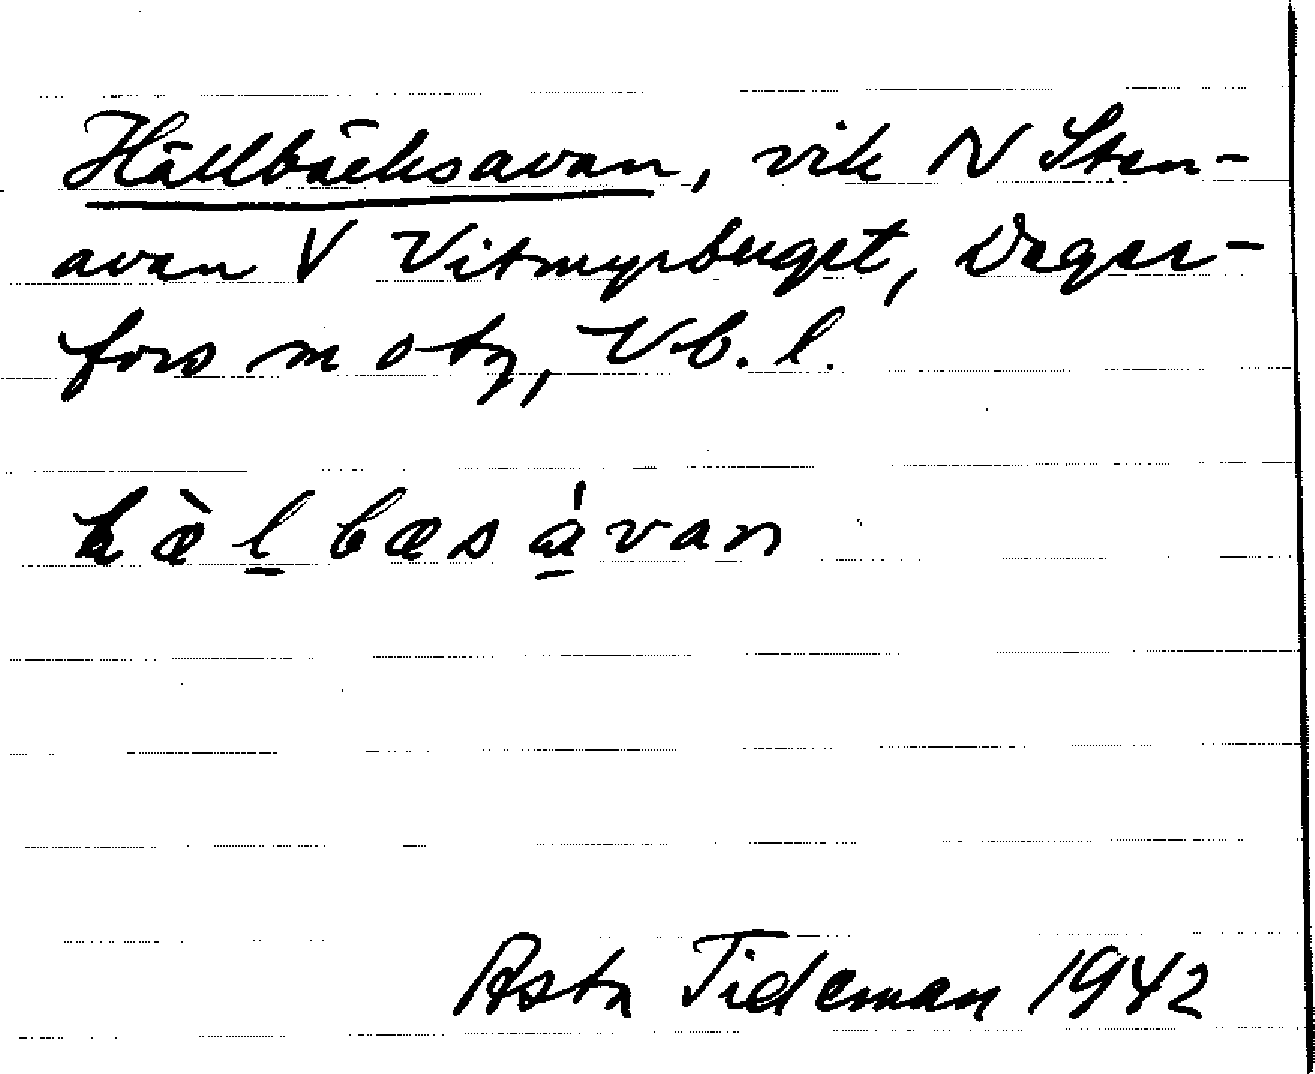 Hällbäcksavan, vik N Sten-
avan V Vitmyrberget, Deger-
fors m otg, Vb. l.
hæ̀l̲bæsa̲̍van
Asta Tideman 1942